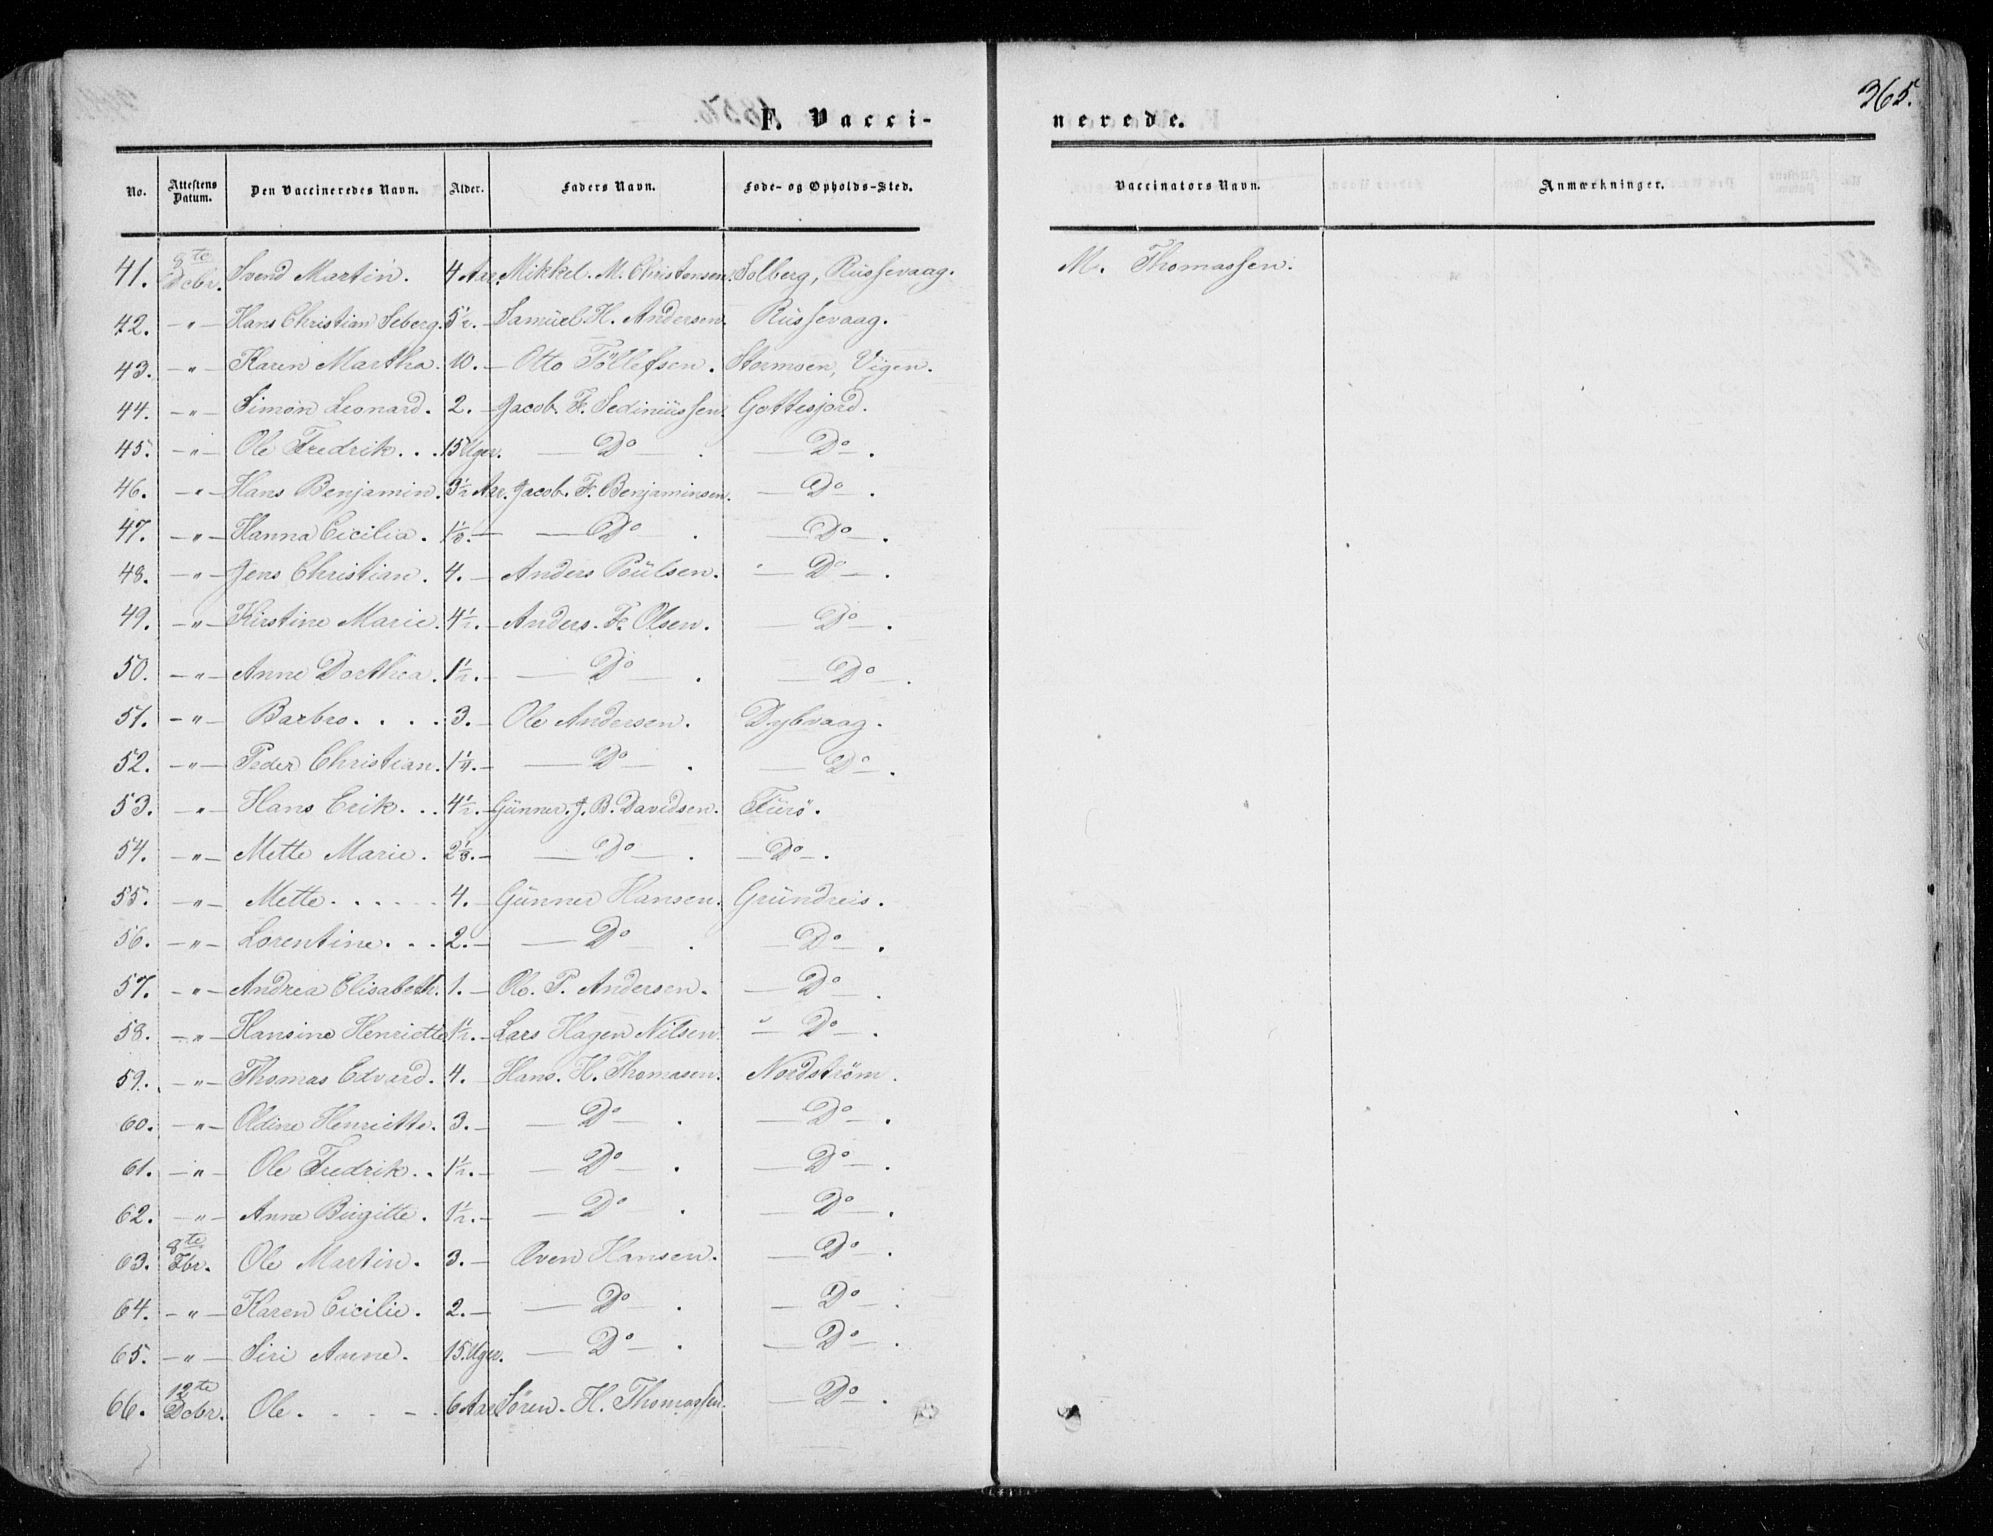 365.
F. Vacci-
nerede.
No. Attestens Datum. Den Vaccineredes Navn. Alder. Faders Navn. Føde- og Opholds-Sted. Vaccinators Navn. Anmærkninger.
41. 8te Dcbr. Svend Martin. 4 Aar. Mikkel. M. Christensen. Solberg, Russevaag. M. Thomassen.
42. -"- Hans Christian Seberg. 5½. - Samüel H. Andersen. Russevaag.
43. -"- Karen Martha. 10. - Otto Töllefsen. Stormoen, Vigen.
44. -"- Simon Leonard. 2. - Jacob. F. Sediniüssen. Gottesjord.
45. -"- Ole Fredrik. . . 15 Uger. - Do - . - Do - .
46. -"- Hans Benjamin. 3½ Aar. Jacob. F. Benjaminsen. - Do - .
47. -"- Hanna Cicilia. - - Do - . - Do - .
48. -"- Jens Christian. 4. - Anders Poülsen. - Do - .
49. -"- Kirstine Marie. 4½. - Anders. F. Olsen. - Do - .
50. -"- Anne Dorthea. 1½. - - Do - . - Do - .
51. -"- Barbro. . . . 3. - Ole Andersen. Dybvaag.
52. -"- Peder Christian. 1¼. - - Do - . - Do - .
53. -"- Hans Erik. . . 4½. - Günner. J. B. Davidsen. Fürö.
54. -"- Mette Marie. - - Do - . - Do - .
55. -"- Mette. . . . . . 4. - Günner Hansen. Gründreis.
56. -"- Lorentine. . . 2. - - Do - . - Do - .
57. -"- Andrea Elisabeth. 1. - Ole. P. Andersen. - Do - .
58. -"- Hansine Henriette 1½. - Lars Hagen Nilsen. - Do - .
59. -"- Thomas Edvard. 4. - Hans. H. Thomasen. Nordström.
60. -"- Oldine Henriette. 3. - - Do - . - Do - .
61. -"- Ole Fredrik. . 1½. - - Do - . - Do - .
62. -"- Anne Birgitte. 1½. - - Do - . - Do - .
63. 8te Fbr. Ole Martin. 3. - Even Hansen. - Do - .
64. -"- Karen Cicilie. 2. - - Do - . - Do - .
65. -"- Siri Anne. 15. Uger. - Do - . - Do - .
66. 12te Dcbr. Ole. . . - . 6 Aar Sören. H. Thomassen. - Do - .